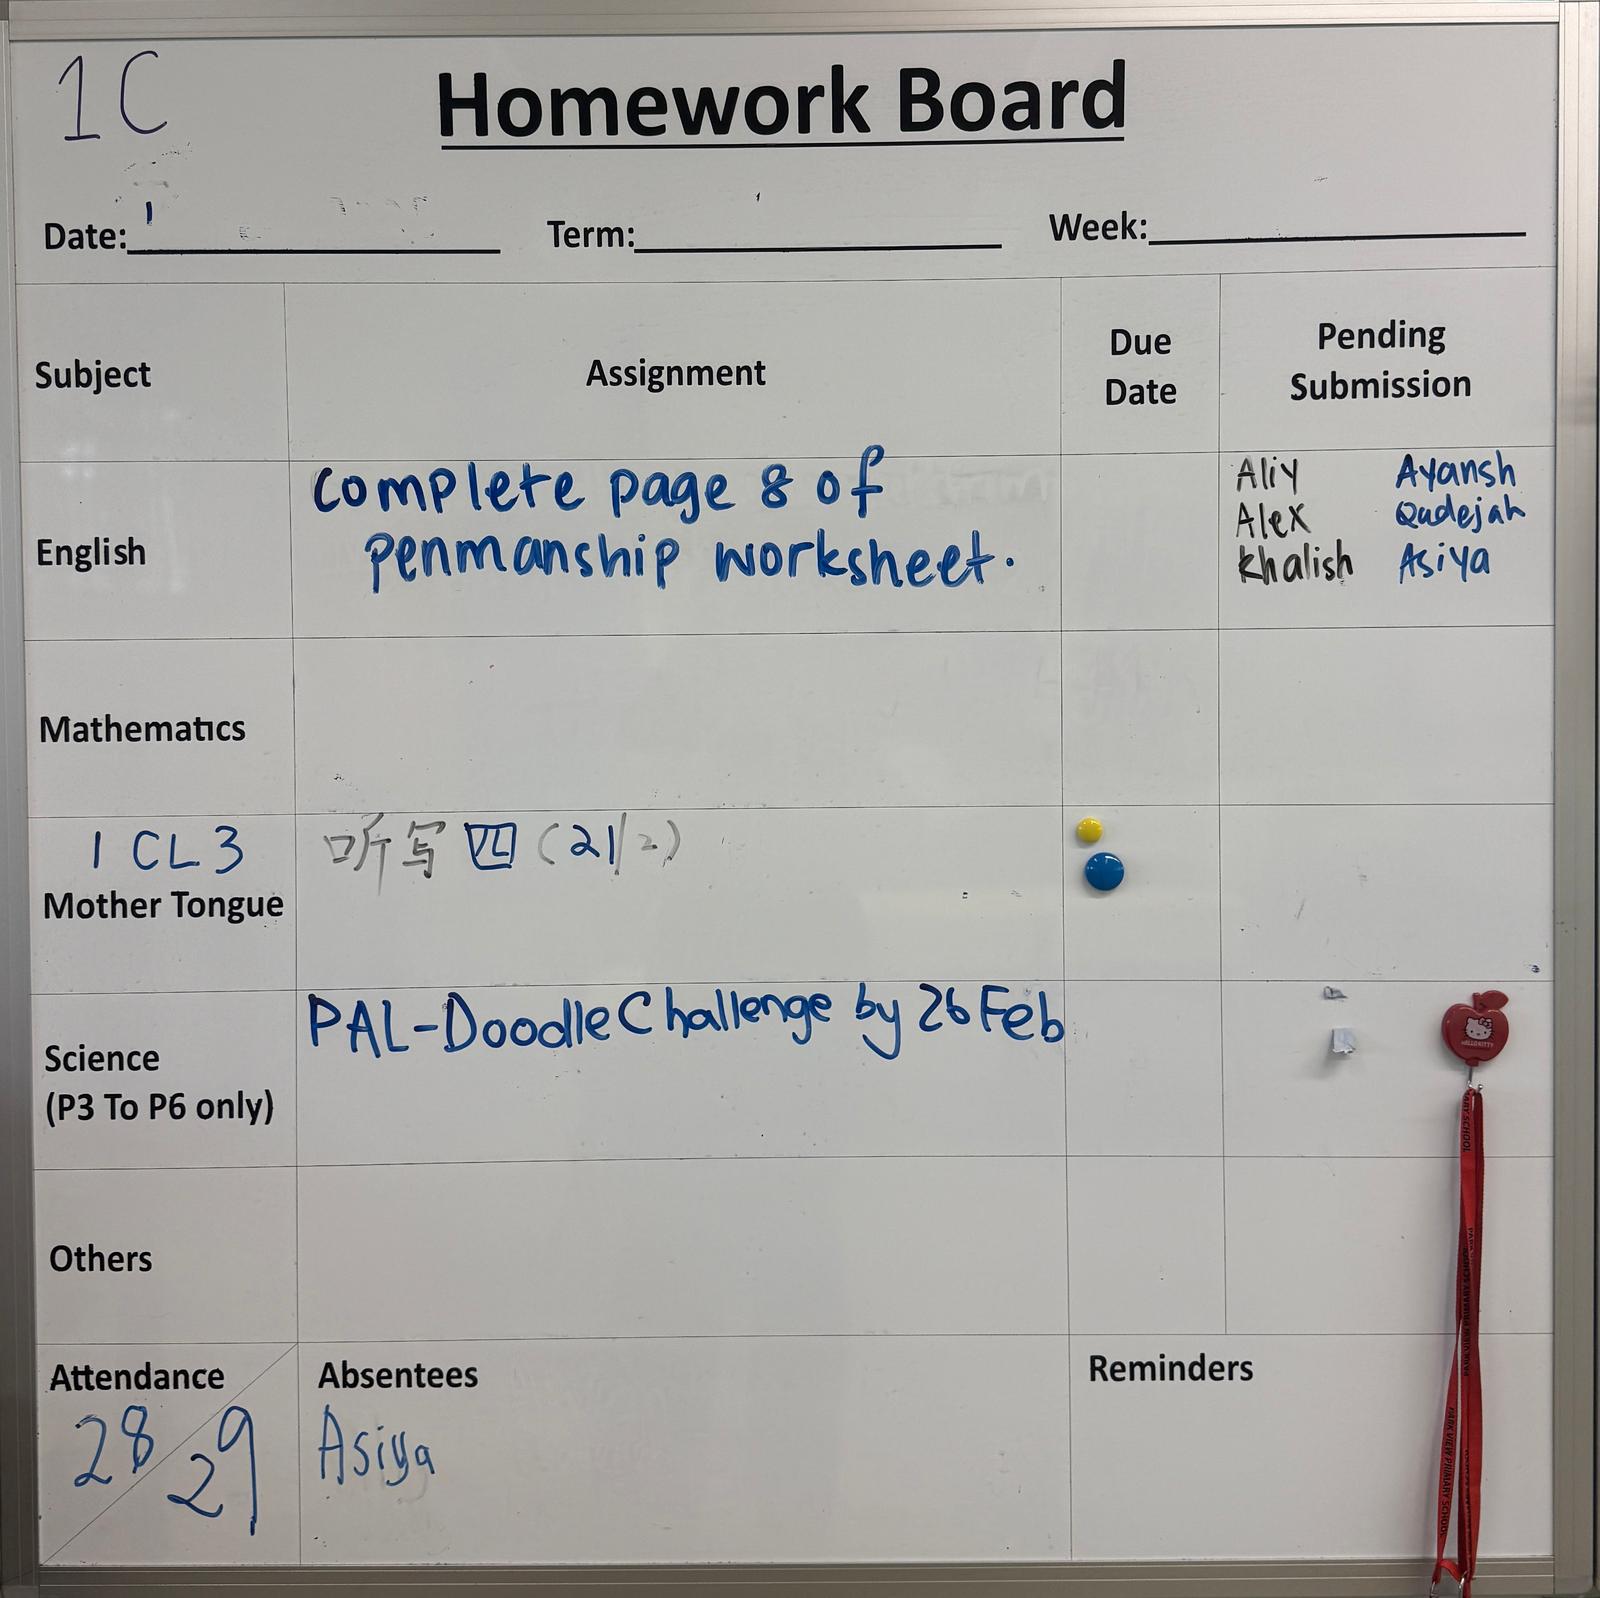 1C
Homework Board
Date: Term: Week:
Subject Assignment Due Date Pending Submission
English
Complete page 8 of
penmanship worksheet.
Aliy Ayansh
Alex Qadejah
Khalish Asiya
Mathematics
1 CL 3
Mother Tongue
听写四(21/2)
Science
(P3 To P6 only)
PAL-Doodle Challenge by 26 Feb
HELLO KITTY
Others
Attendance
28/29
Absentees
Asiya
Reminders
PARK VIEW PRIMARY SCHOOL